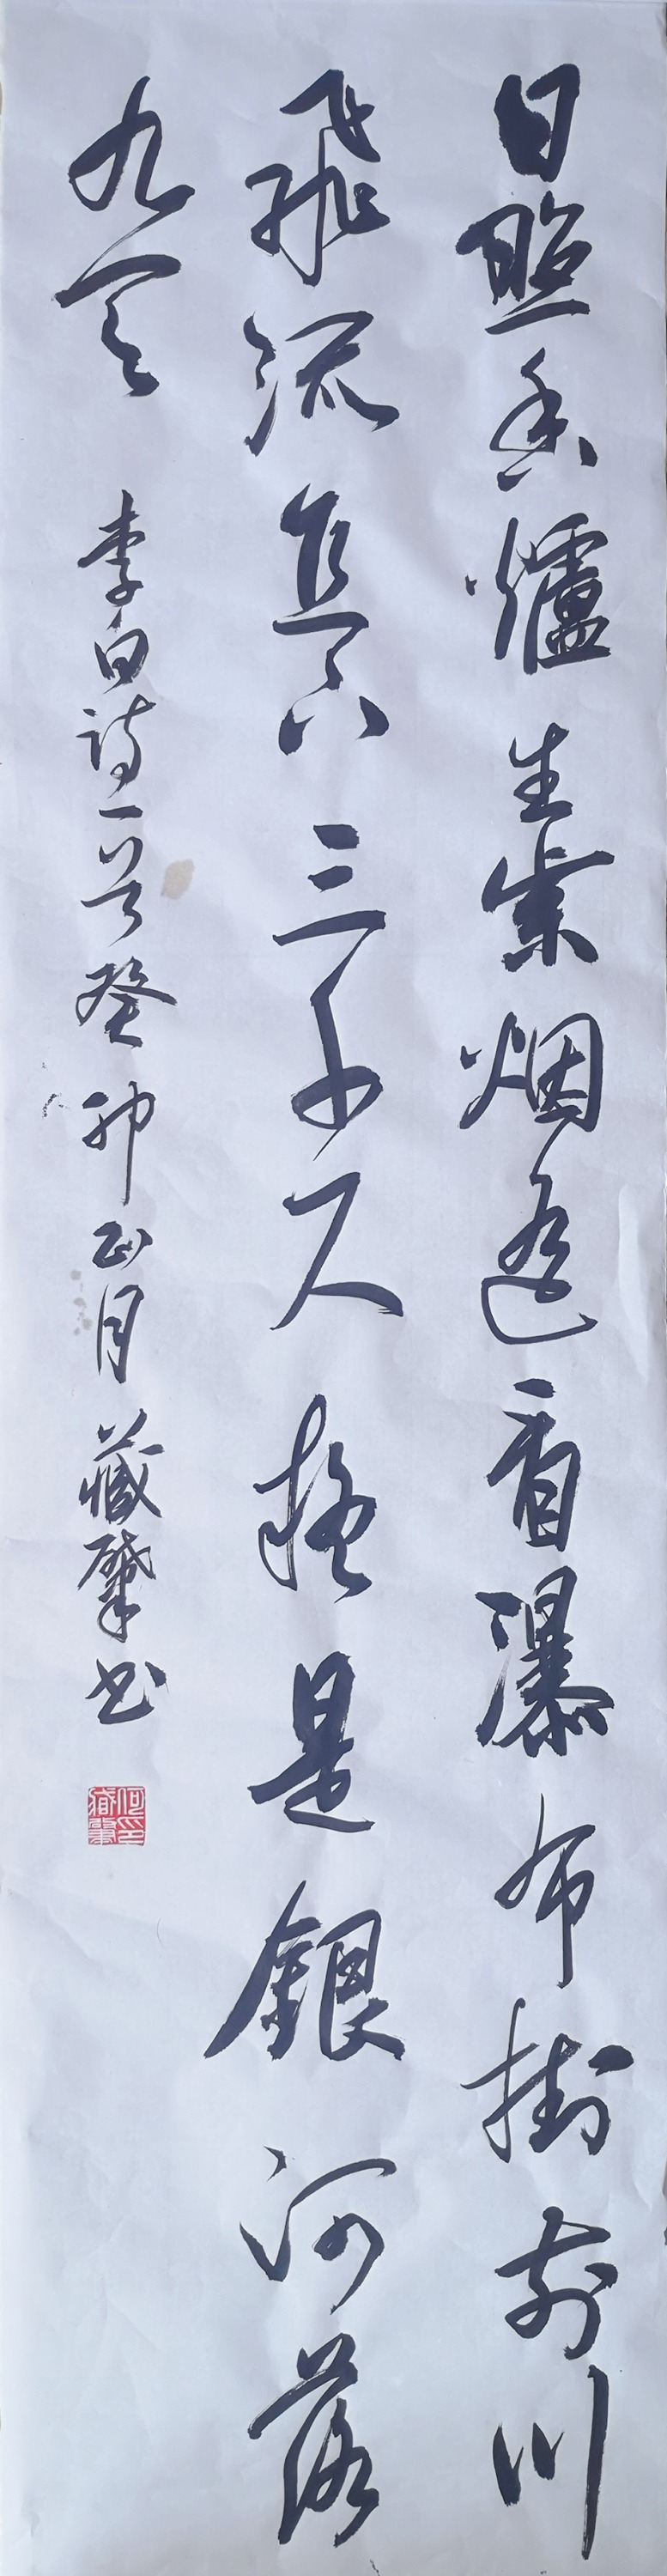 日照香爐生紫烟遥看瀑布掛前川
飛流直下三千尺疑是銀河落
九天
李白詩一首癸卯正月藏肇书
何印藏肇